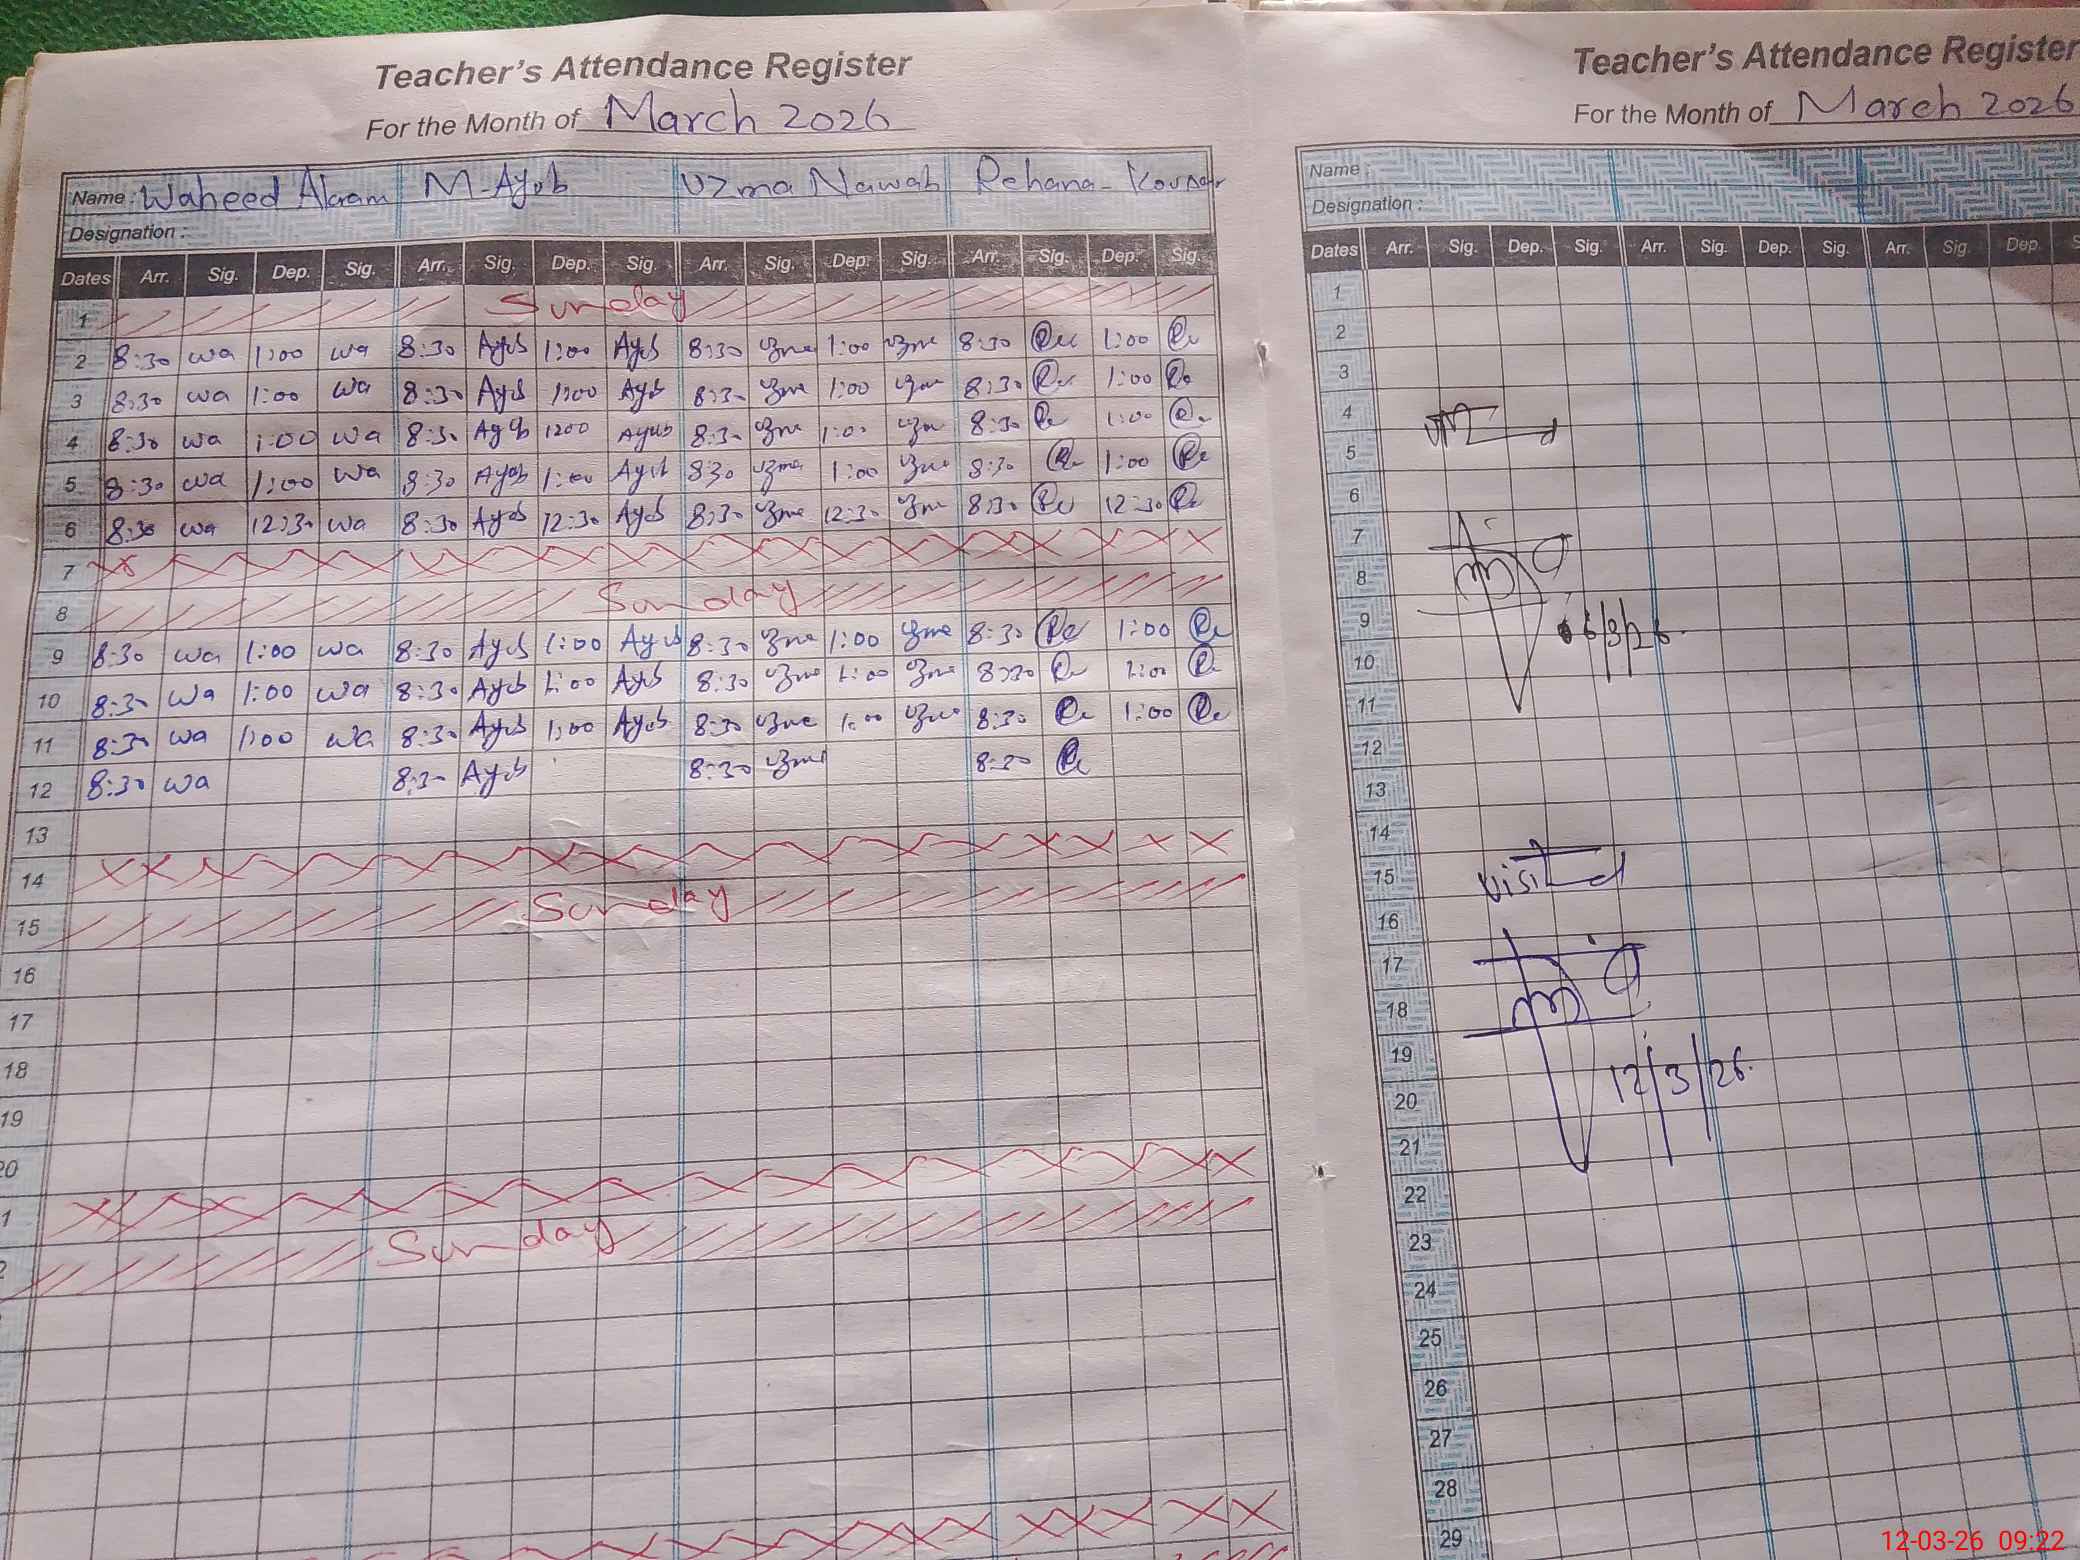 Teacher's Attendance Register
For the Month of March 2026
Name: Waheed Akram M-Ayub Uzma Nawab Rehana-Kousar
Designation:
Dates Arr. Sig. Dep. Sig. Arr. Sig. Dep. Sig. Arr. Sig. Dep. Sig. Arr. Sig. Dep. Sig.
1 Sunday
2 8:30 wa 1:00 wa 8:30 Ayub 1:00 Ayub 8:30 Uzma 1:00 Uzma 8:30 Re 1:00 Re
3 8:30 wa 1:00 wa 8:30 Ayub 1:00 Ayub 8:30 Uzma 1:00 Uzma 8:30 Re 1:00 Re
4 8:30 wa 1:00 wa 8:30 Ayub 1200 Ayub 8:30 Uzma 1:00 Uzma 8:30 Re 1:00 Re
5 8:30 wa 1:00 wa 8:30 Ayub 1:00 Ayub 830 Uzma 1:00 Uzma 8:30 Re 1:00 Re
6 8:30 wa 12:30 wa 8:30 Ayub 12:30 Ayub 8:30 Uzma 12:30 Uzma 8:30 Re 12:30 Re
7
8 Sunday
9 8:30 wa 1:00 wa 8:30 Ayub 1:00 Ayub 8:30 Uzma 1:00 Uzma 8:30 Re 1:00 Re
10 8:30 wa 1:00 wa 8:30 Ayub 1:00 Ayub 8:30 Uzma 1:00 Uzma 8:30 Re 1:00 Re
11 8:30 wa 1:00 wa 8:30 Ayub 1:00 Ayub 8:30 Uzma 1:00 Uzma 8:30 Re 1:00 Re
12 8:30 wa 8:30 Ayub 8:30 Uzma 8:30 Re
13
14
15 Sunday
16
17
18
19
20
1
2 Sunday
Teacher's Attendance Register
For the Month of March 2026
Name:
Designation:
Dates Arr. Sig. Dep. Sig. Arr. Sig. Dep. Sig. Arr. Sig. Dep.
1
2
3
4
5
6
7
8
9 6/3/26
10
11
12
13
14
15 Visited
16
17
18
19
20 12/3/26.
21
22
23
24
25
26
27
28
29
12-03-26 09:22